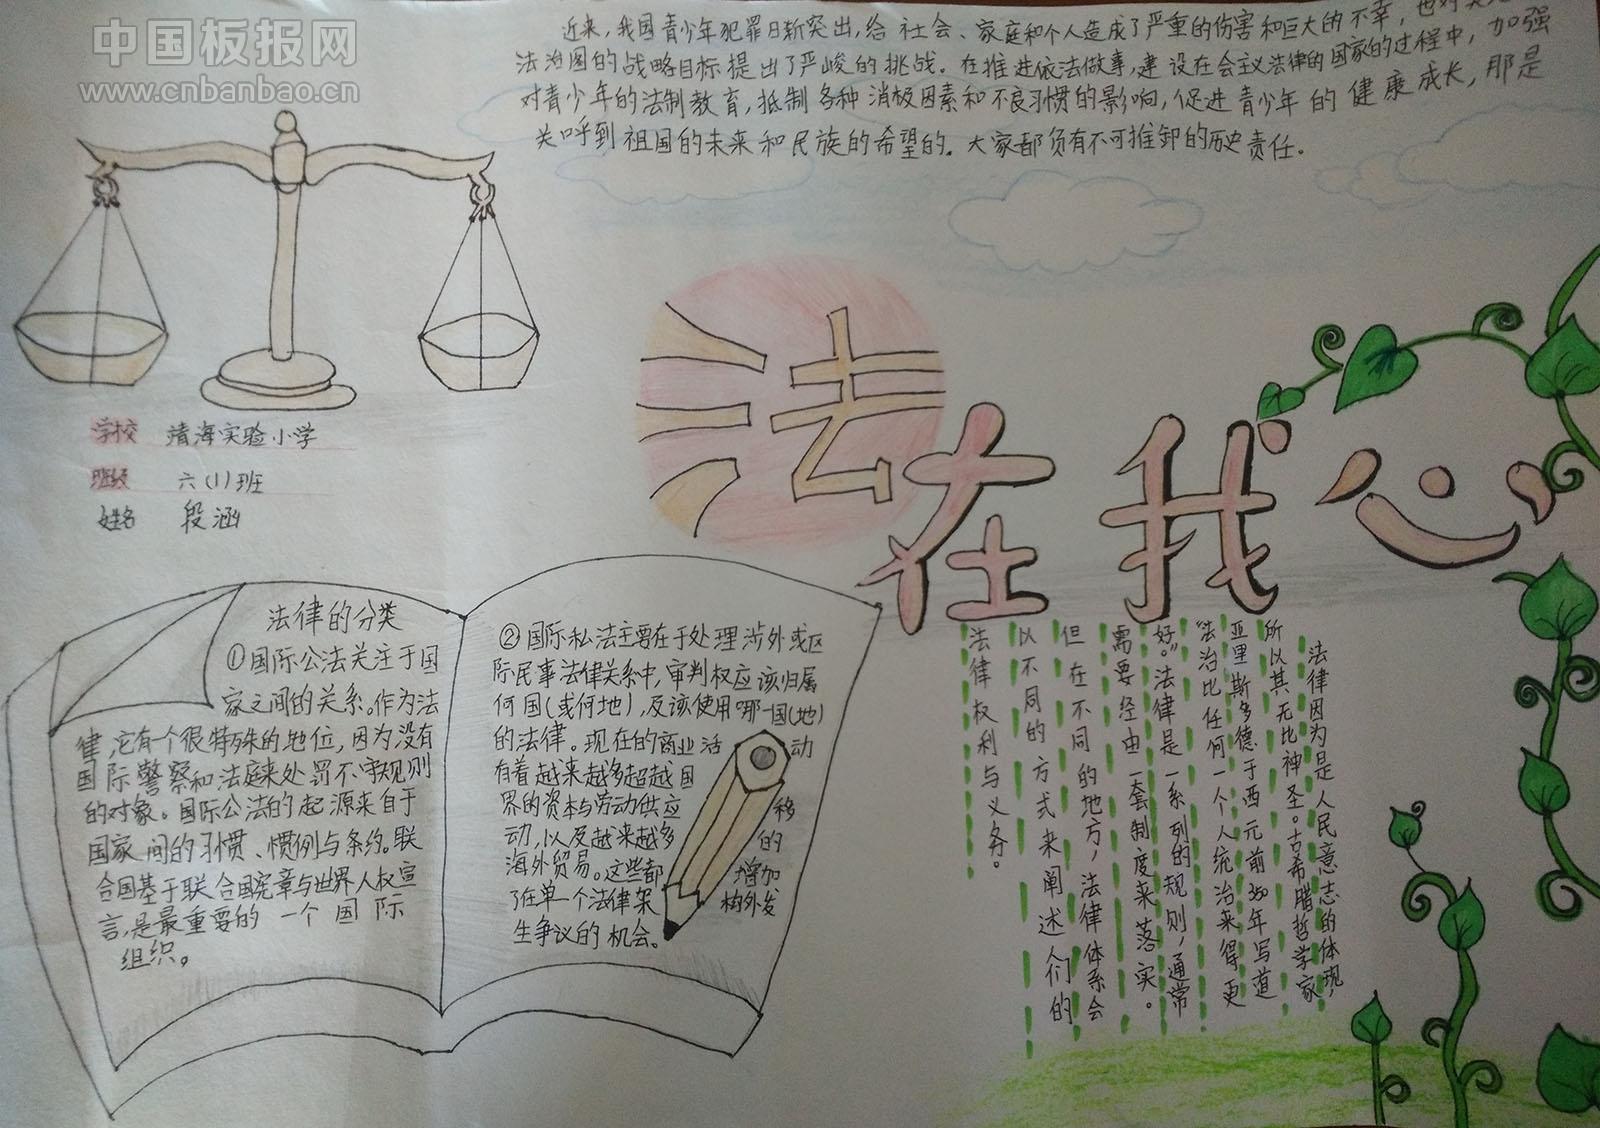 中国板报网
www.cnbanbao.cn
近来，我国青少年犯罪日渐突出，给社会、家庭和个人造成了严重的伤害和巨大的不幸，也对
法治国的战略目标提出了严峻的挑战。在推进依法做事，建设在会主义法律的国家的过程中，加强
对青少年的法制教育，抵制各种消极因素和不良习惯的影响，促进青少年的健康成长，那是
关呼到祖国的未来和民族的希望的。大家都负有不可推卸的历史责任。
法在我心
学校 靖海实验小学
班级 六(1)班
姓名 段涵
法律的分类
①国际公法关注于国
家之间的关系。作为法
律，它有一个很特殊的地位，因为没有
国际警察和法庭来处罚不守规则
的对象。国际公法的起源来自于
国家间的习惯、惯例与条约。联
合国基于联合国宪章与世界人权宣
言，是最重要的一个国际
组织。
②国际私法主要在于处理涉外或区
际民事法律关系中，审判权应该归属
何国(或何地)，及该使用哪一国(地)
的法律。现在的商业活动
有着越来越多超越国
界的资本与劳动供应移
动，以及越来越多的
海外贸易。这些都增加
了在单一个法律架构外发
生争议的机会。
法律因为是人民意志的体现，
所以其无比神圣。古希腊哲学家
亚里斯多德于西元前350年写道
“法治比任何一个人统治来得更
好。”法律是一系列的规则，通常
需要经由一套制度来落实。
但在不同的地方，法律体系会
以不同的方式来阐述人们的
法律权利与义务。